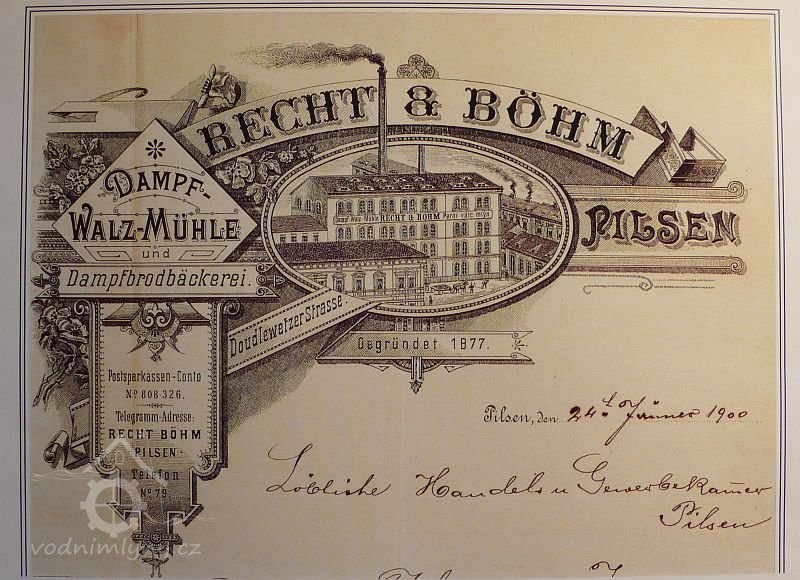 RECHT & BÖHM
DAMPF-
WALZ-MÜHLE
und
Dampfbrodbäckerei.
PILSEN
Dampf Walz-Mühle RECHT & BÖHM Parní válc. mlýn
Doudlewetzer Strasse.
Gegründet 1877.
Postsparkassen-Conto
No 808·326.
Telegramm-Adresse:
RECHT BÖHM
PILSEN
Telefon
No 79
Pilsen, den 24t. Jänner 1900
Löbliche Handels u Gewerbekam̅er
Pilsen
vodnimlyny.cz